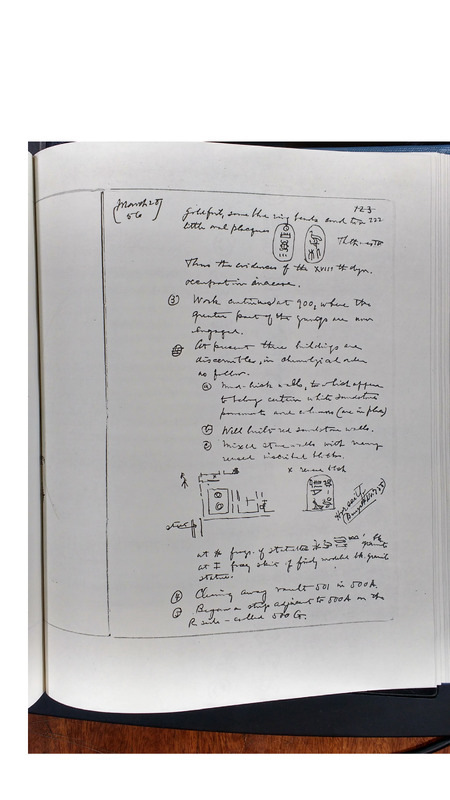 March 20
56
123
222
gold foil, some blue ring beads and two
little oval plaques
Thus the evidences of the XVIII th dyn.
occupation increase.
③ Work continued at 900, where the
greater part of the gangs are now
engaged.
At present three buildings are
discernible, in chronological order
as follow.
ⓐ Mud-brick walls, to which appear
to belong certain white sandstone
pavements and columns (one in place)
ⓑ Well built red sandstone walls.
ⓒ Mixed stone walls with many
reused inscribed blocks.
x reuse block
at # frags. of statue
at I frag of finely modeled bk. granite
statue.
④ Clearing away vault 501 in 500A.
⑤ Began a strip adjacent to 500A on the
R side – called 500 G.